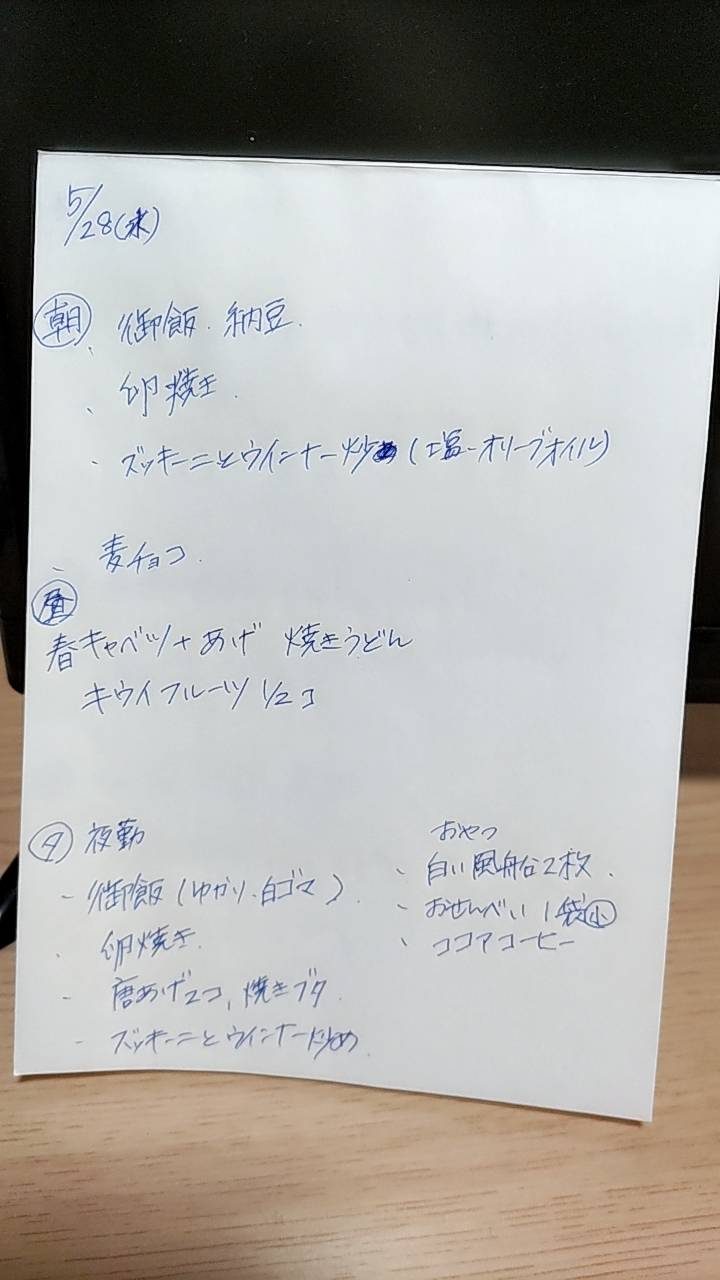 5/28(水)
朝 御飯.納豆.
、卵焼き.
・ズッキーニとウインナー炒め(塩-オリーブオイル)
- 麦チョコ.
昼
春キャベツ+あげ 焼きうどん
キウイフルーツ1/2コ
夕 夜勤
- 御飯(ゆかり.白ゴマ).
・卵焼き.
- 唐あげ2コ,焼きブタ.
- ズッキーニとウインナー炒め.
おやつ
- 白い風船2枚.
- おせんべい 1袋小
、ココアコーヒー